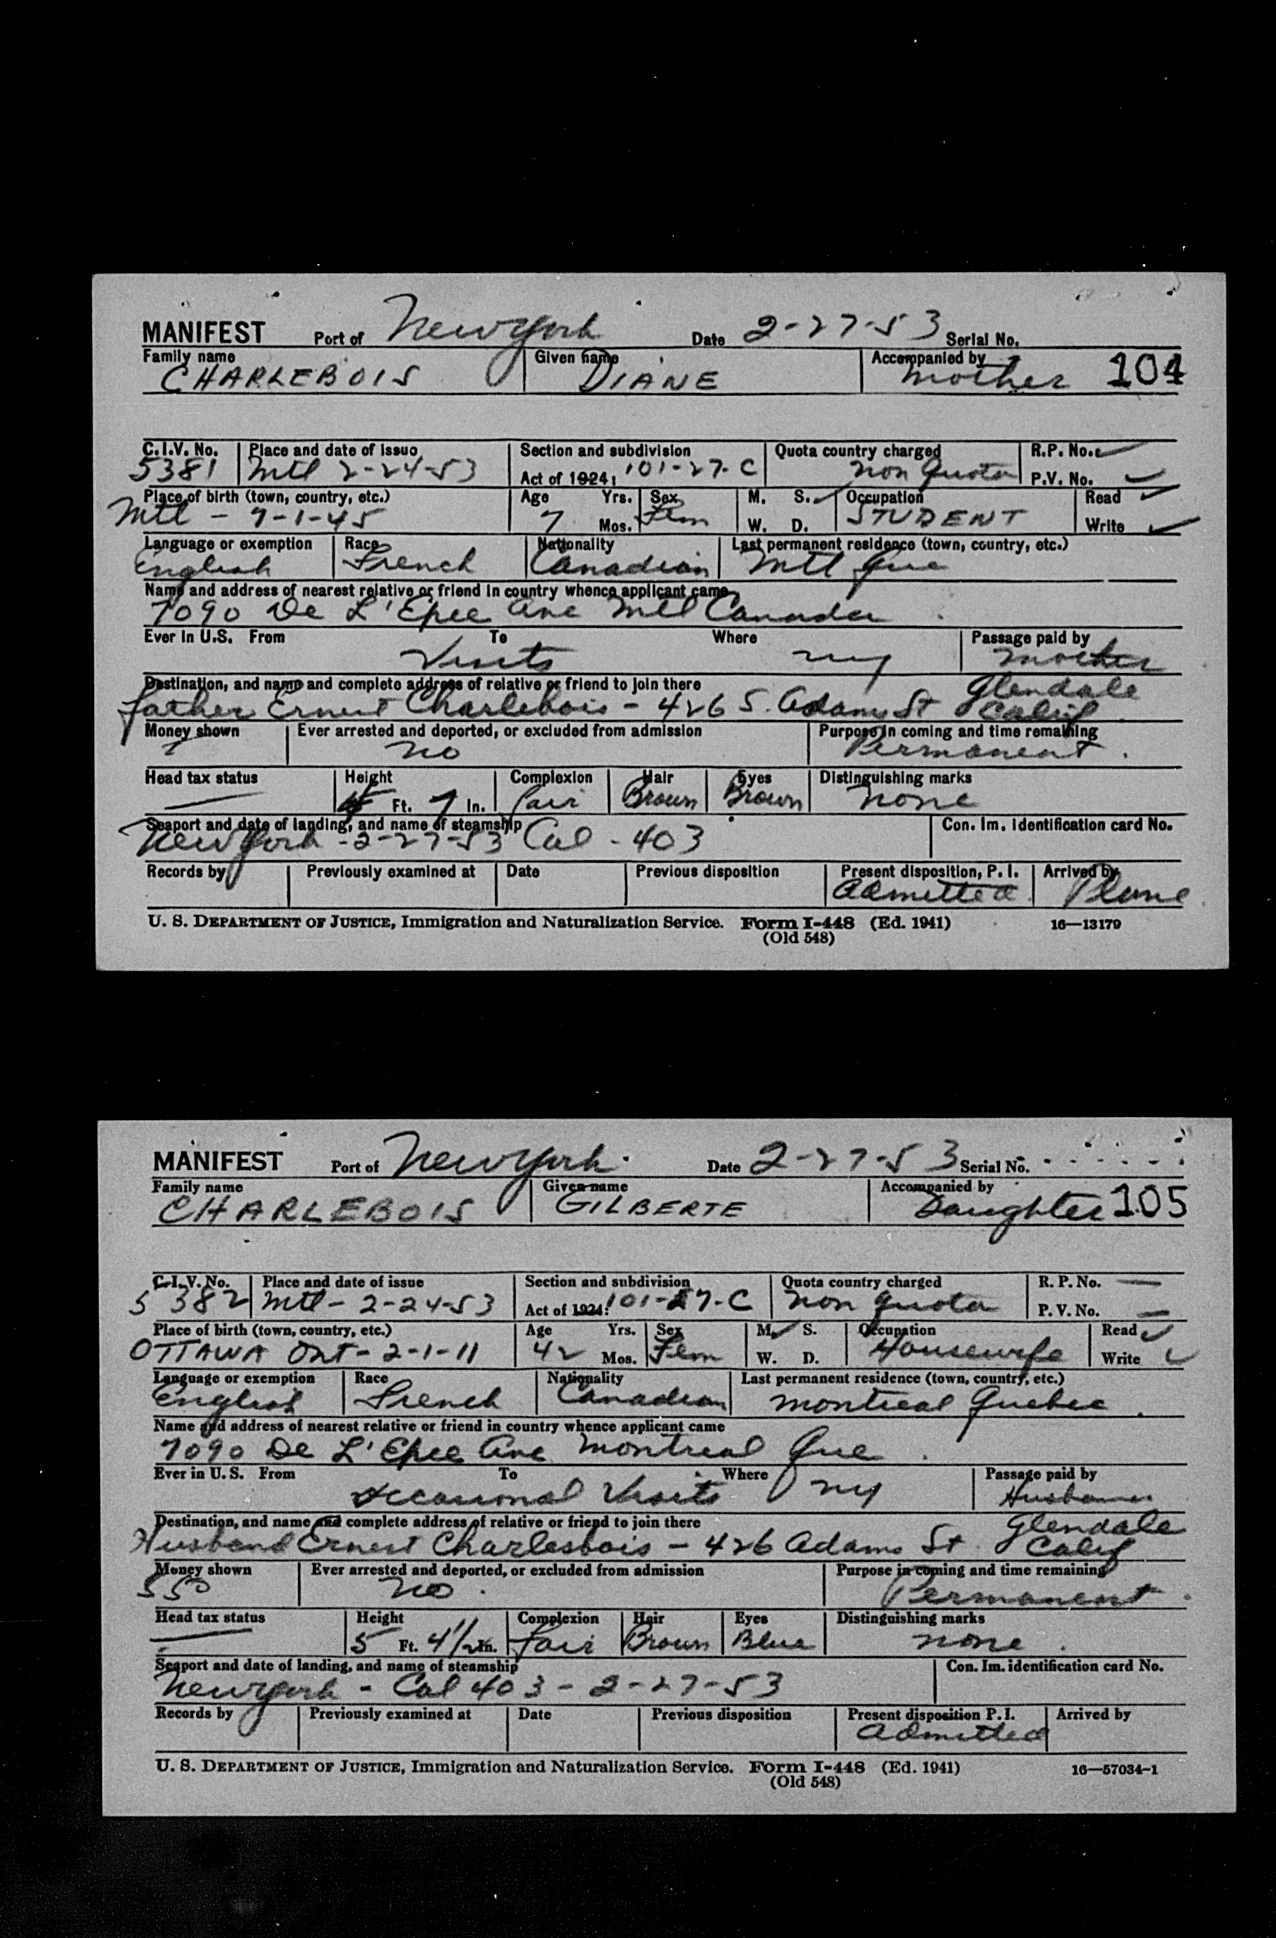 MANIFEST Port of New York Date 2-27-53 Serial No.
Family name Given name Accompanied by
CHARLEBOIS DIANE Mother 104
C.I.V. No. Place and date of issue Section and subdivision Quota country charged R.P. No.
5381 Mtl 2-24-53 Act of 1924: 101-27-C non Quota P.V. No.
Place of birth (town, country, etc.) Age Yrs. Sex M. S. Occupation Read
Mtl - 7-1-45 7 Mos. Fem W. D. STUDENT Write
Language or exemption Race Nationality Last permanent residence (town, country, etc.)
English French Canadian Mtl Que
Name and address of nearest relative or friend in country whence applicant came
7090 De L'Epee Ave Mtl Canada
Ever in U.S. From To Where Passage paid by
Visits ny mother
Destination, and name and complete address of relative or friend to join there
father Ernest Charlebois - 426 S. Adams St Glendale Calif
Money shown Ever arrested and deported, or excluded from admission Purpose in coming and time remaining
no Permanent
Head tax status Height Complexion Hair Eyes Distinguishing marks
Ft. 7 In. Fair Brown Brown none
Seaport and date of landing, and name of steamship Con. Im. Identification card No.
New York - 2-27-53 Cal - 403
Records by Previously examined at Date Previous disposition Present disposition, P. I. Arrived by
Admitted Plane
U. S. DEPARTMENT OF JUSTICE, Immigration and Naturalization Service. Form I-448 (Ed. 1941) 16—13179
(Old 548)
MANIFEST Port of New York Date 2-27-53 Serial No.
Family name Given name Accompanied by
CHARLEBOIS GILBERTE Daughter 105
C.I.V. No. Place and date of issue Section and subdivision Quota country charged R. P. No.
5382 Mtl - 2-24-53 Act of 1924: 101-27-C non quota P. V. No.
Place of birth (town, country, etc.) Age Yrs. Sex M. S. Occupation Read
OTTAWA Ont - 2-1-11 42 Mos. Fem W. D. Housewife Write
Language or exemption Race Nationality Last permanent residence (town, country, etc.)
English French Canadian Montreal Quebec
Name and address of nearest relative or friend in country whence applicant came
7090 De L'Epee Ave Montreal Que
Ever in U. S. From To Where Passage paid by
occasional Visits ny Husband
Destination, and name and complete address of relative or friend to join there
Husband Ernest Charlesbois - 426 Adams St Glendale Calif
Money shown Ever arrested and deported, or excluded from admission Purpose in coming and time remaining
no Permanent
Head tax status Height Complexion Hair Eyes Distinguishing marks
5 Ft. 4 1/2 In. Fair Brown Blue none
Seaport and date of landing, and name of steamship Con. Im. identification card No.
New York - Cal 403 - 2-27-53
Records by Previously examined at Date Previous disposition Present disposition P. I. Arrived by
Admitted
U. S. DEPARTMENT OF JUSTICE, Immigration and Naturalization Service. Form I-448 (Ed. 1941) 16—57034-1
(Old 548)